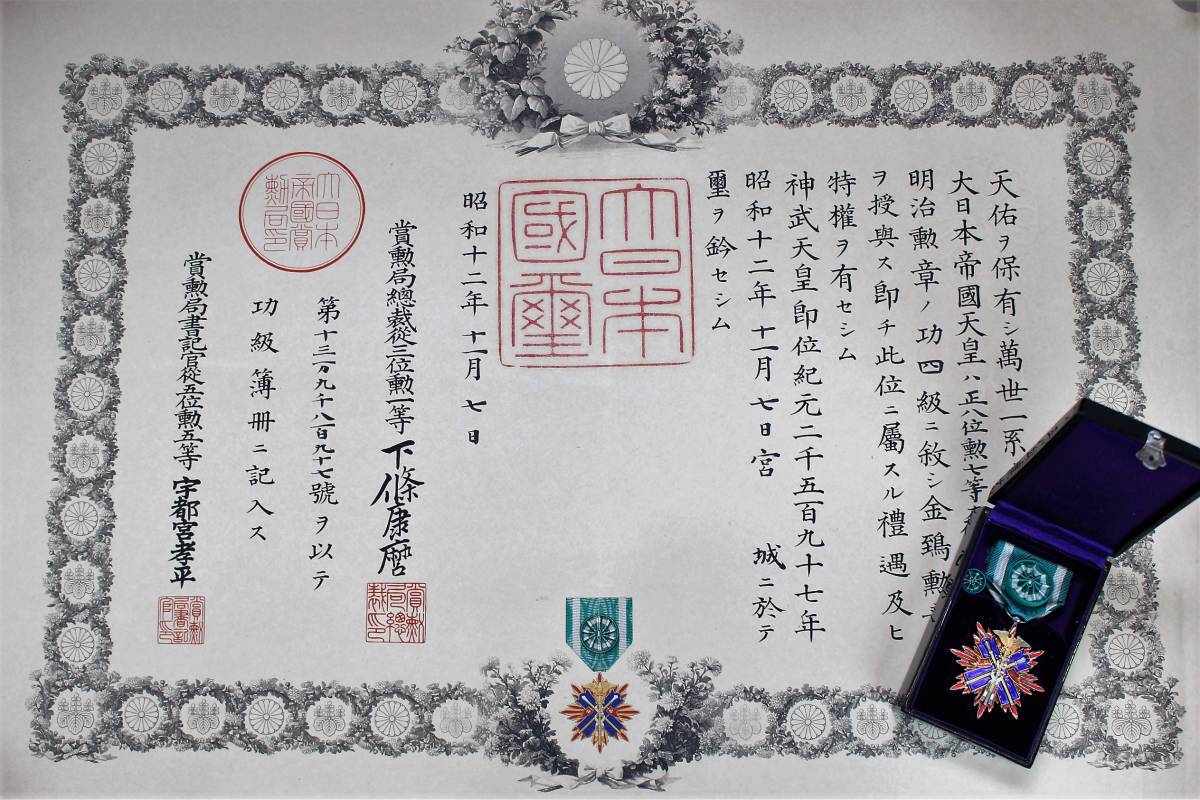 天佑ヲ保有シ萬世一系
大日本帝國天皇ハ正八位勲七等
明治勲章ノ功四級ニ敘シ金鵄勲
ヲ授與ス即チ此位ニ屬スル禮遇及ヒ
特權ヲ有セシム
神武天皇即位紀元二千五百九十七年
昭和十二年十一月七日宮城ニ於テ
璽ヲ鈐セシム
大日本
國璽
昭和十二年十一月七日
賞勲局總裁從三位勲一等下條康麿
賞勲
局總
裁印
大日本
帝國賞
勲局印
第十三万九千八百九十七號ヲ以テ
功級簿册ニ記入ス
賞勲局書記官從五位勲五等宇都宮孝平
賞勲
局書記
官印